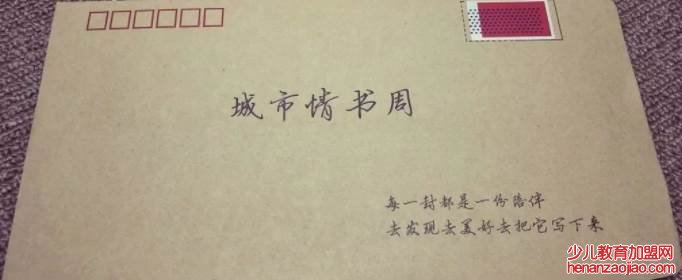 城市情书周
每一封都是一份陪伴
去发现去美好去把它写下来
少儿教育加盟网
henanzaojiao.com